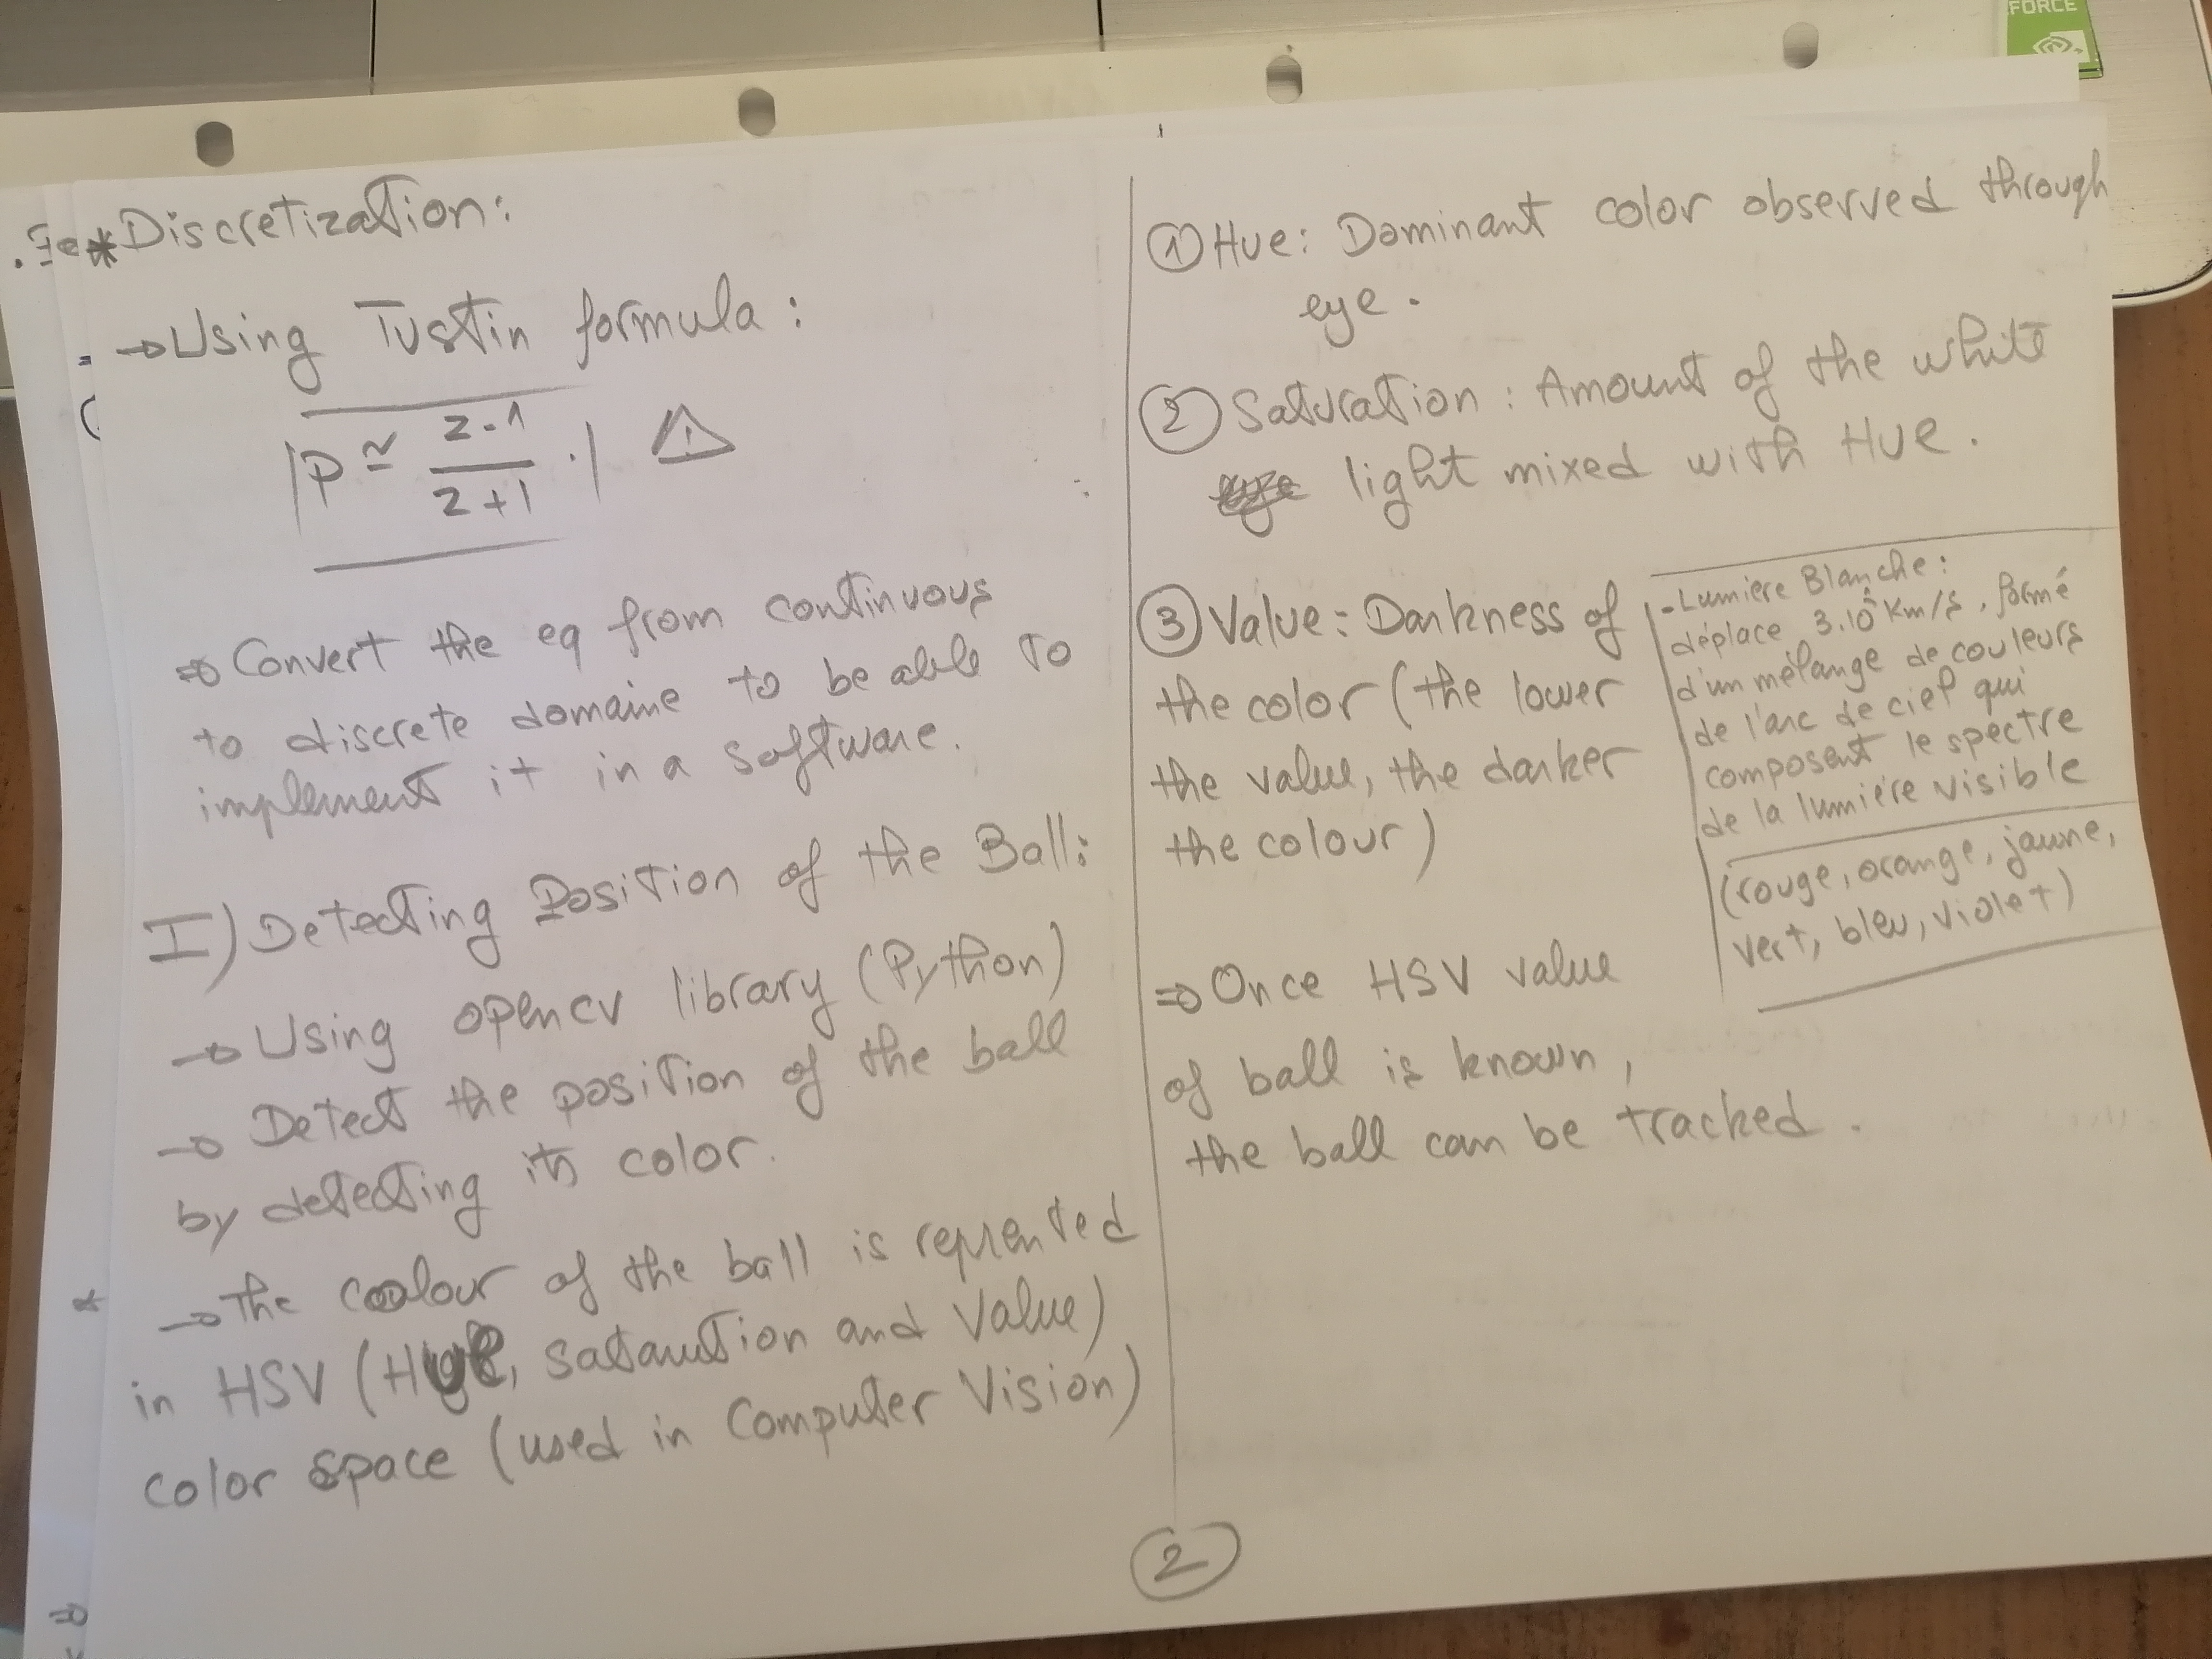 FORCE
* Discretization:
→ Using Tustin formula:
P ≃ z-1 / z+1 . !
⇒ Convert the eq from continuous
to discrete domaine to be able to
implement it in a software.
I) Detecting Position of the Ball:
→ Using opencv library (Python)
→ Detect the position of the ball
by detecting its color.
→ The coolour of the ball is reprented
in HSV (Hue, sataustion and Value)
color space (used in Computer Vision)
① Hue: Dominant color observed through
eye.
② Saturation: Amount of the white
light mixed with Hue.
③ Value: Darkness of
the color (the lower
the value, the darker
the colour)
- Lumière Blanche:
déplace 3.10⁵ Km/s, formé
d'un mélange de couleurs
de l'arc de ciel qui
composent le spectre
de la lumière visible
(rouge, orange, jaune,
vert, bleu, violet)
⇒ Once HSV value
of ball is known,
the ball can be tracked.
2